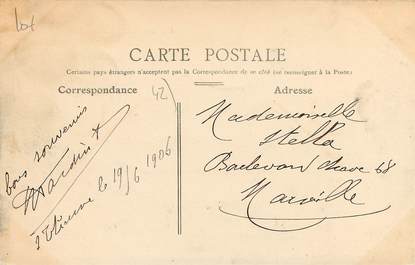 lot
CARTE POSTALE
Certains pays étrangers n'acceptent pas la Correspondance de ce côté (se renseigner à la Poste)
Correspondance
42)
Adresse
bons souvenirs
St Etienne le 19/6 1906
Mademoiselle
Stella
Boulevard chave 68
Marseille